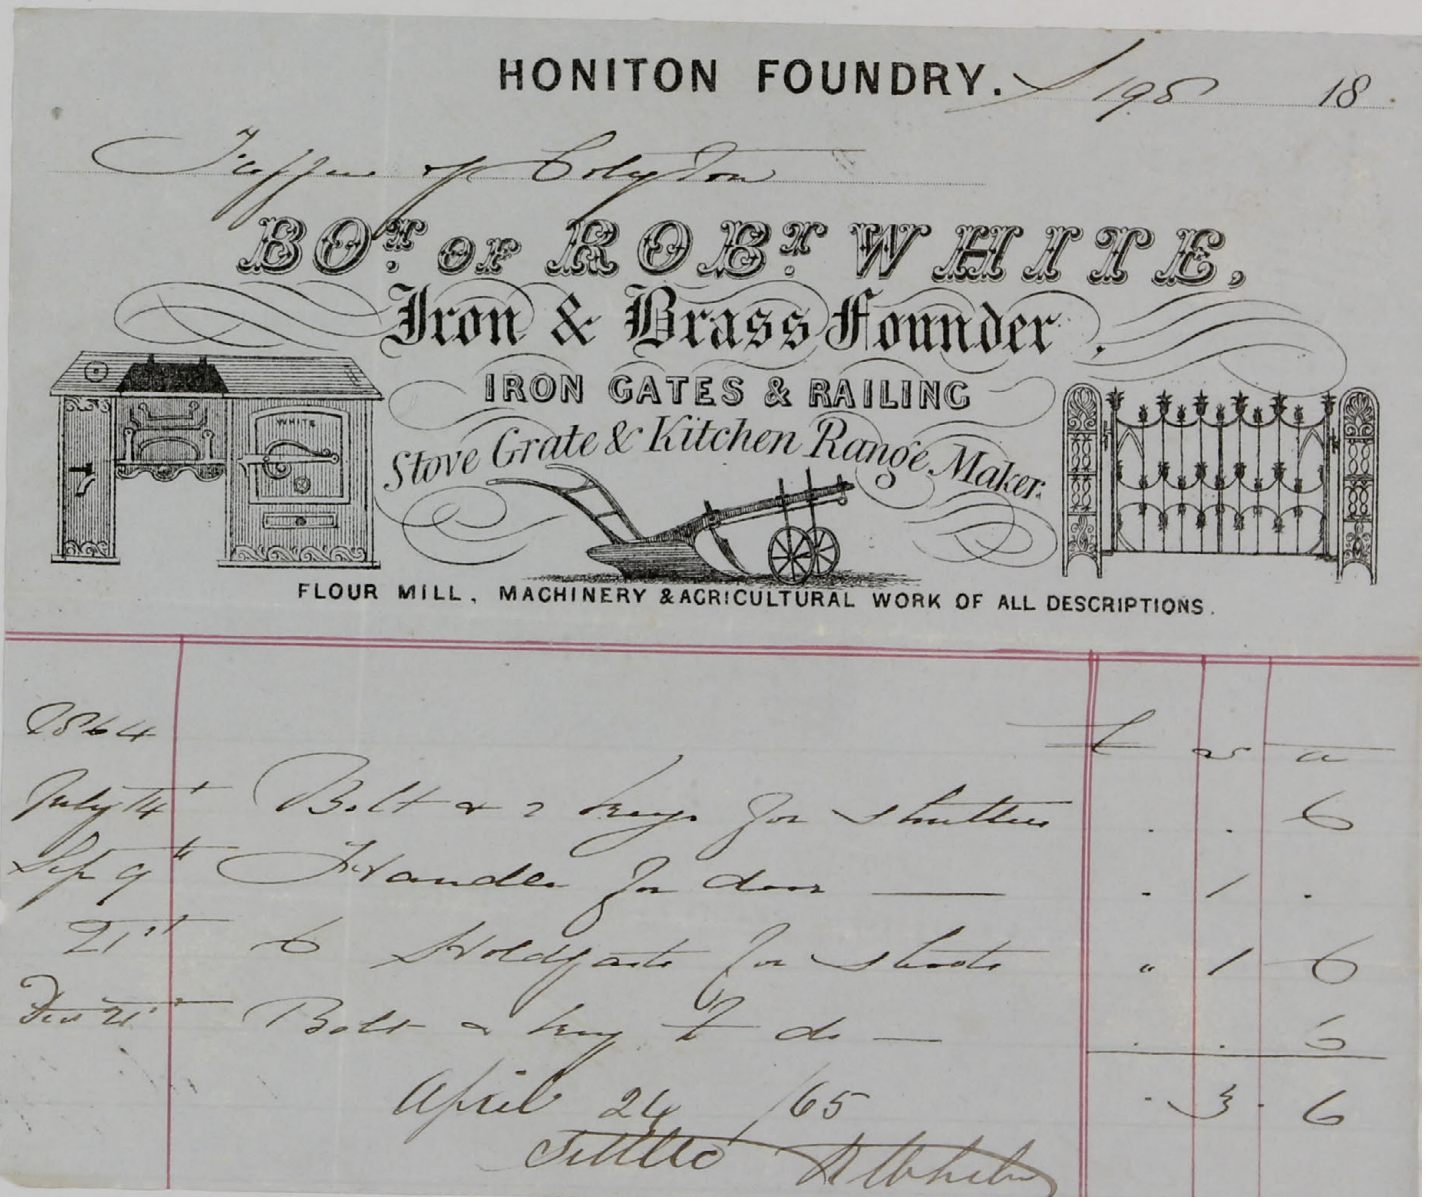 HONITON FOUNDRY. 195 18
Feoffees of Colyton
BOT. OF ROBT. WHITE,
Iron & Brass Founder.
IRON GATES & RAILING
WHITE
Stove Grate & Kitchen Range Maker.
FLOUR MILL, MACHINERY & AGRICULTURAL WORK OF ALL DESCRIPTIONS.
1864 £ s d
July 14t Bolt & 2 keys for shutters . . 6
Sep 9th Handle for door — . 1 .
21st 6 Holdfasts for shoots " 1 6
21st Bolt & key to do — . . 6
April 24 /65 . 3 . 6
Settled R White